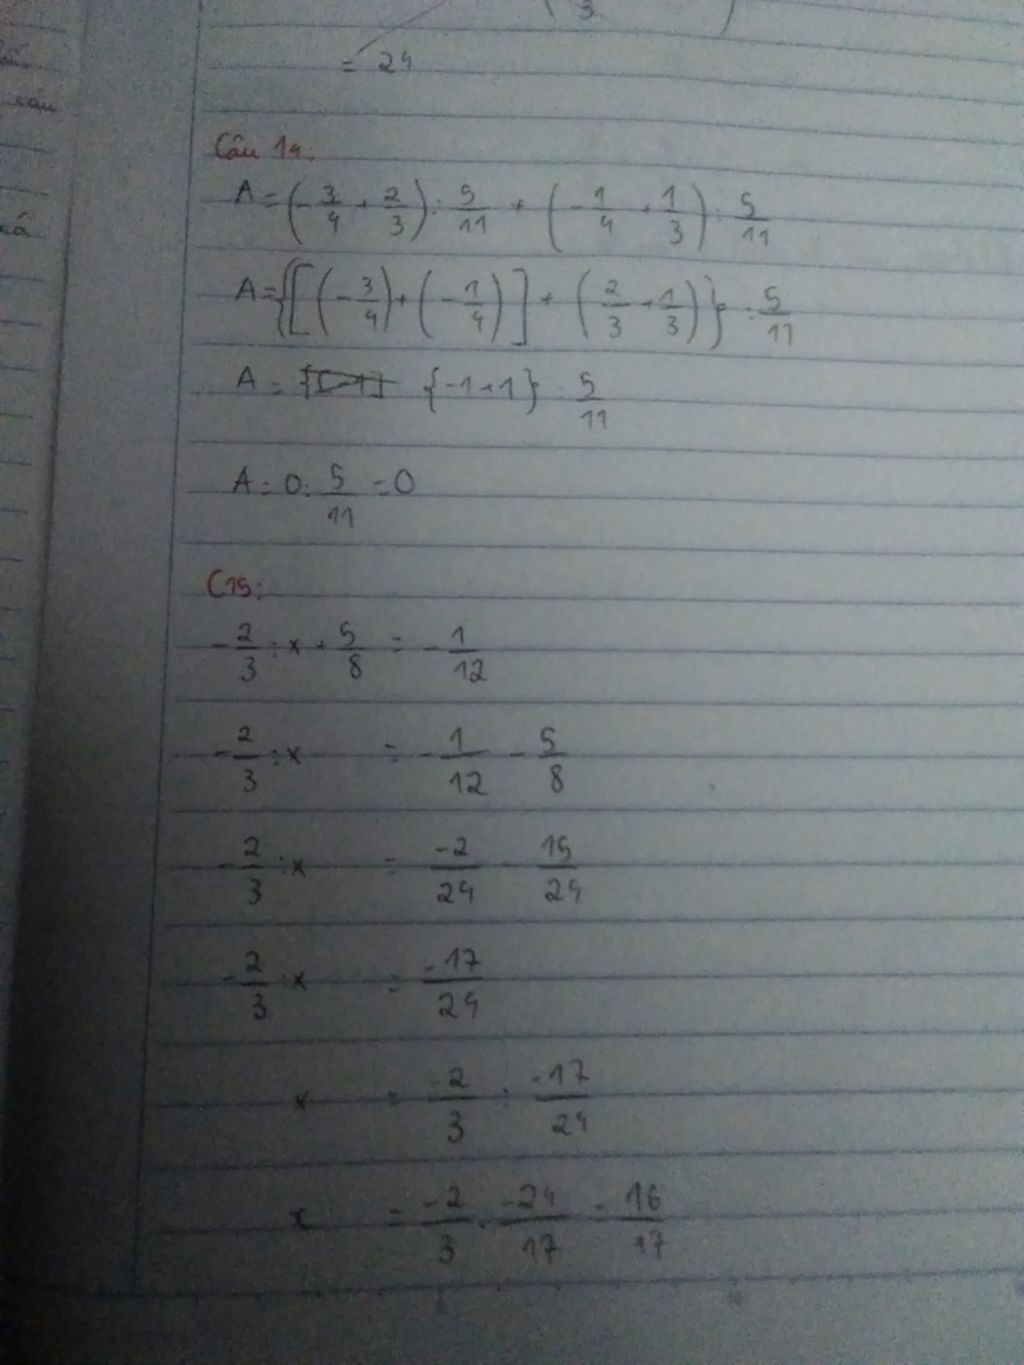 3
= 24
Câu 14:
A = (-3/4 + 2/3) : 5/11 + (-1/4 + 1/3) : 5/11
A = {[(-3/4) + (-1/4)] + (2/3 + 1/3)} : 5/11
A = {-1 + 1} : 5/11
A = 0 : 5/11 = 0
C15:
-2/3 : x + 5/8 = -1/12
-2/3 : x = -1/12 - 5/8
-2/3 : x = -2/24 - 15/24
-2/3 : x = -17/24
x = -2/3 : -17/24
x = -2/3 . -24/17 = 16/17